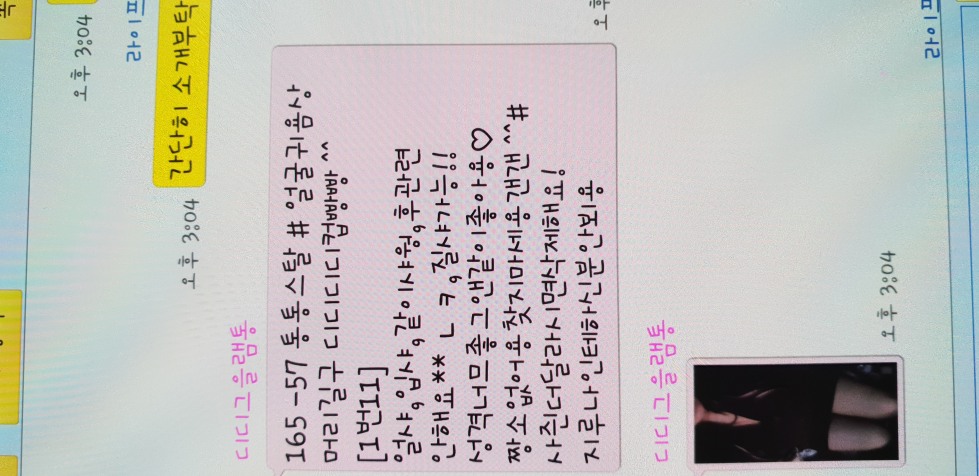 오후 3:04
라이프
간단히 소개부탁
오후 3:04
디디그을램통
165-57 통통스탈 # 얼굴귀욤상
머리길구 디디디디컵빵빵^^
[1번11]
얼샤,입샤,같이샤워,후관련
안해요** ㄴㅋ,질샤가능!!
성격너므좋그앤같이좋아용♡
짱소없어용찾지마세용갠갠^^#
사진더달라시면삭제해요!
지루나인테하신분안뵈용
오후
디디그을램통
오후 3:04